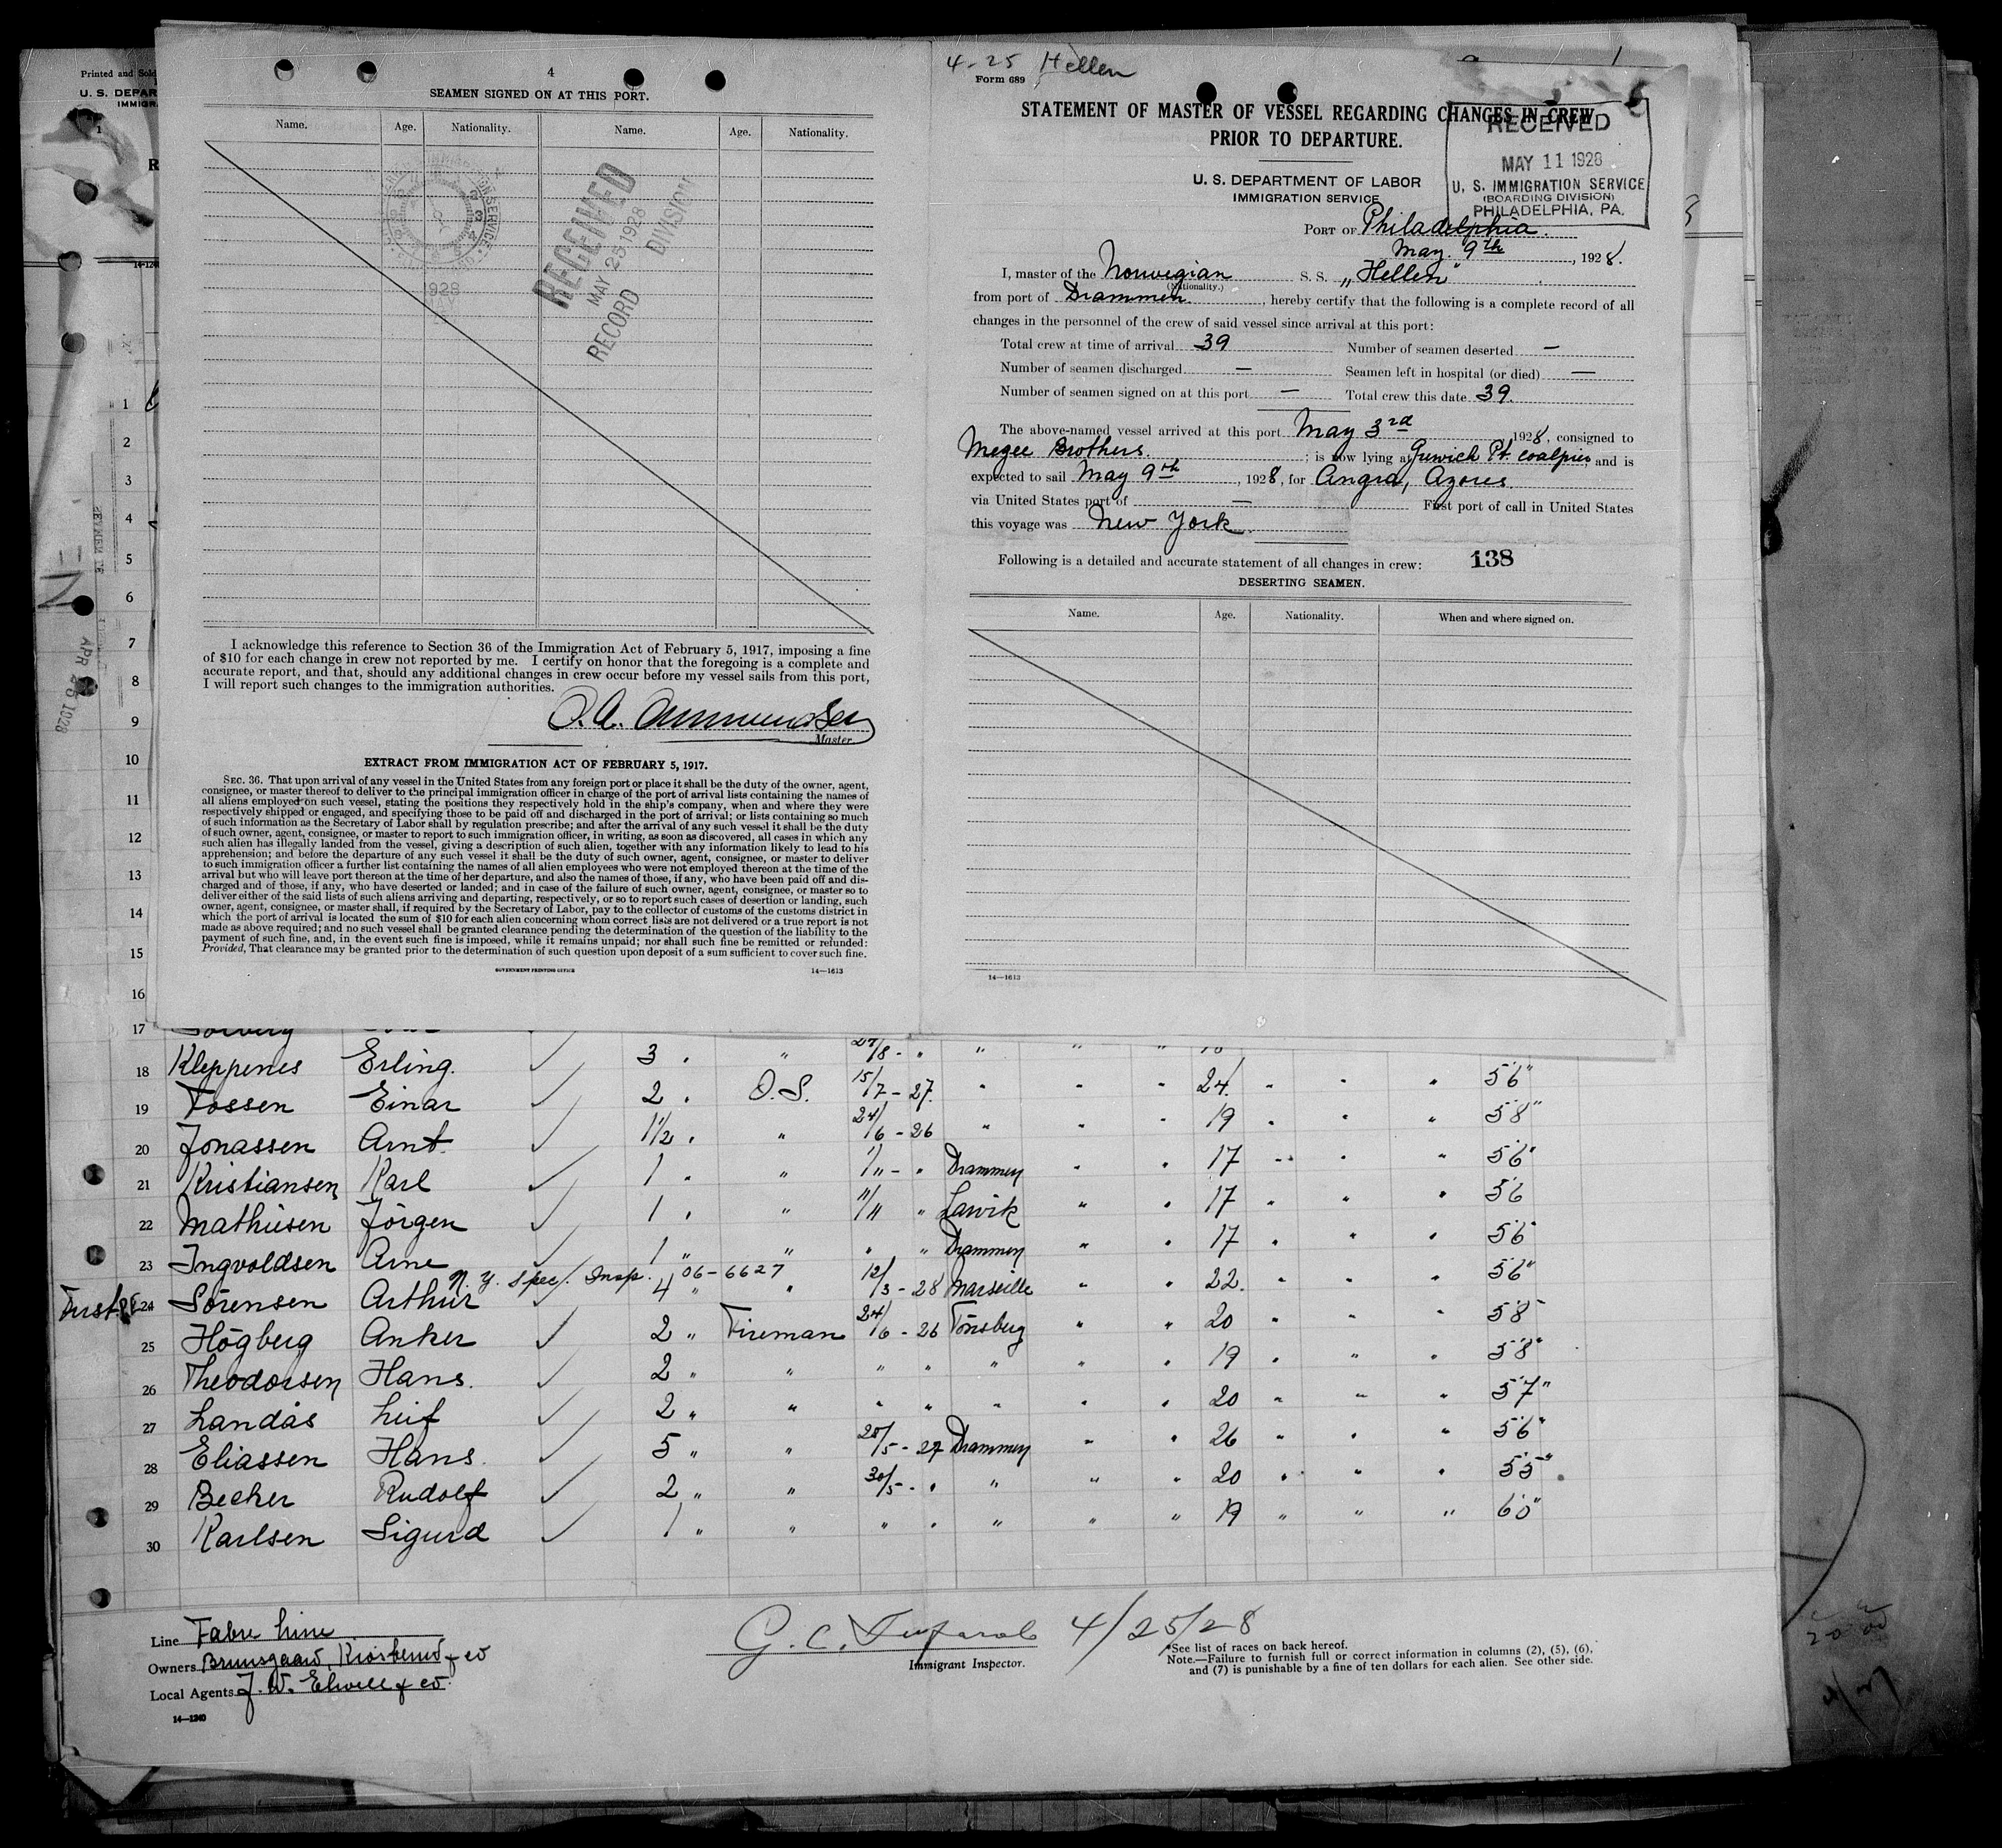 Printed and Sold
U. S. DEPAR
IMMIGR
4
SEAMEN SIGNED ON AT THIS PORT.
Name. Age. Nationality. Name. Age. Nationality.
RECEIVED
MAY 25 1928
RECORD DIVISION
1928
I acknowledge this reference to Section 36 of the Immigration Act of February 5, 1917, imposing a fine
of $10 for each change in crew not reported by me. I certify on honor that the foregoing is a complete and
accurate report, and that, should any additional changes in crew occur before my vessel sails from this port,
I will report such changes to the immigration authorities.
Master.
EXTRACT FROM IMMIGRATION ACT OF FEBRUARY 5, 1917.
SEC. 36. That upon arrival of any vessel in the United States from any foreign port or place it shall be the duty of the owner, agent,
consignee, or master thereof to deliver to the principal immigration officer in charge of the port of arrival lists containing the names of
all aliens employed on such vessel, stating the positions they respectively hold in the ship's company, when and where they were
respectively shipped or engaged, and specifying those to be paid off and discharged in the port of arrival; or lists containing so much
of such information as the Secretary of Labor shall by regulation prescribe; and after the arrival of any such vessel it shall be the duty
of such owner, agent, consignee, or master to report to such immigration officer, in writing, as soon as discovered, all cases in which any
such alien has illegally landed from the vessel, giving a description of such alien, together with any information likely to lead to his
apprehension; and before the departure of any such vessel it shall be the duty of such owner, agent, consignee, or master to deliver
to such immigration officer a further list containing the names of all alien employees who were not employed thereon at the time of the
arrival but who will leave port thereon at the time of her departure, and also the names of those, if any, who have been paid off and dis-
charged and of those, if any, who have deserted or landed; and in case of the failure of such owner, agent, consignee, or master so to
deliver either of the said lists of such aliens arriving and departing, respectively, or so to report such cases of desertion or landing, such
owner, agent, consignee, or master shall, if required by the Secretary of Labor, pay to the collector of customs of the customs district in
which the port of arrival is located the sum of $10 for each alien concerning whom correct lists are not delivered or a true report is not
made as above required; and no such vessel shall be granted clearance pending the determination of the question of the liability to the
payment of such fine, and, in the event such fine is imposed, while it remains unpaid; nor shall such fine be remitted or refunded:
Provided, That clearance may be granted prior to the determination of such question upon deposit of a sum sufficient to cover such fine.
GOVERNMENT PRINTING OFFICE 14—1613
4-25 Hellen
Form 689
STATEMENT OF MASTER OF VESSEL REGARDING CHANGES IN CREW
PRIOR TO DEPARTURE.
RECEIVED
MAY 11 1928
U. S. IMMIGRATION SERVICE
(BOARDING DIVISION)
PHILADELPHIA, PA.
U. S. DEPARTMENT OF LABOR
IMMIGRATION SERVICE
PORT OF Philadelphia.
May. 9th, 1928.
I, master of the Norwegian S. S. „Hellen"
(Nationality.)
from port of Drammen hereby certify that the following is a complete record of all
changes in the personnel of the crew of said vessel since arrival at this port:
Total crew at time of arrival 39 Number of seamen deserted —
Number of seamen discharged — Seamen left in hospital (or died) —
Number of seamen signed on at this port — Total crew this date 39.
The above-named vessel arrived at this port May 3rd 1928, consigned to
Megee Brothers ; is now lying at Pt. coalpier, and is
expected to sail May 9th, 1928, for Angra, Azores.
via United States port of — First port of call in United States
this voyage was New York.
Following is a detailed and accurate statement of all changes in crew: 138
DESERTING SEAMEN.
Name. Age. Nationality. When and where signed on.
14—1613
1
2
3
4
5
6
7
8
9
10
11
12
13
14
15
16
17
18 Kleppenes Erling. 3 . " 24/8 - " " " "
19 Fossen Einar 2 . O.S. 15/7 - 27. " " " 24. " " " 5'6"
20 Jonassen Arnt. 1½ . " 24/6 - 26 " " " 19 " " " 5'8"
21 Kristiansen Karl 1 . " 1/11 - " Drammen " " 17 " " " 5'6"
22 Mathiesen Jörgen 1 . " 11/11 " Larvik " " 17 " " " 5'6
23 Ingvoldsen Arne 1 " " " " Drammen " " 17 " " " 5'6"
N. Y. Spec. Insp. 06-6627
24 Sörensen Arthur 4 " " 12/3 - 28 Marseille " " 22. " " " 5'6"
25 Högberg Anker 2 " Fireman 24/6 - 26 Tönsberg " " 20 " " " 5'8"
26 Theodorsen Hans. 2 " " " " " " " 19 " " " 5'8"
27 Landås Leif 2 " " " " " " " 20 " " " 5'7"
28 Eliassen Hans. 5 " " 20/5 - 27 Drammen " " 26 " " " 5'6"
29 Becher Rudolf 2 " " 30/5 - " " " " 20 " " " 5'5"
30 Karlsen Sigurd 1 " " " " " " " 19 " " " 6'0"
Line Fabre Line
Owners Bruusgaard, Kiosterud & co
Local Agents J. W. Elwell & co.
14—1240
G. C. 4/25/28
Immigrant Inspector.
*See list of races on back hereof.
Note.—Failure to furnish full or correct information in columns (2), (5), (6),
and (7) is punishable by a fine of ten dollars for each alien. See other side.